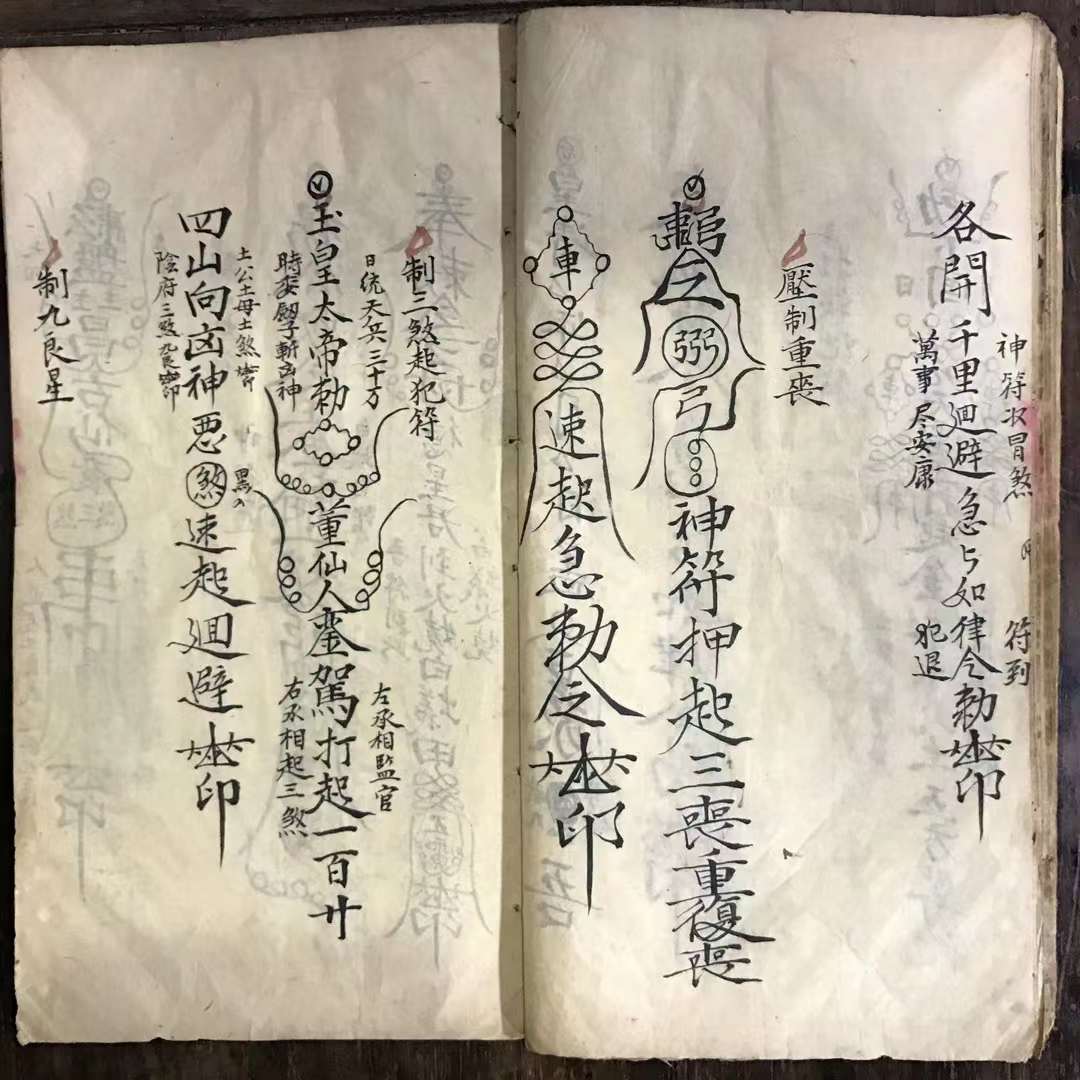 各開千里廻避急急如律令勅
印
神符収冒煞
符到
萬事尽安康
犯退
壓制重喪
弼
弓
神符押起三喪重復喪
車
速起急勅令
印
制三煞起犯符
日統天兵三十万
玉皇太帝勅
董仙人鑾駕打起一百廿
時安劔子斬凶神
左承相監官
右承相起三煞
四山向凶神悪煞速起廻避
印
土公土母土煞
黑入
陰府三煞
制九良星